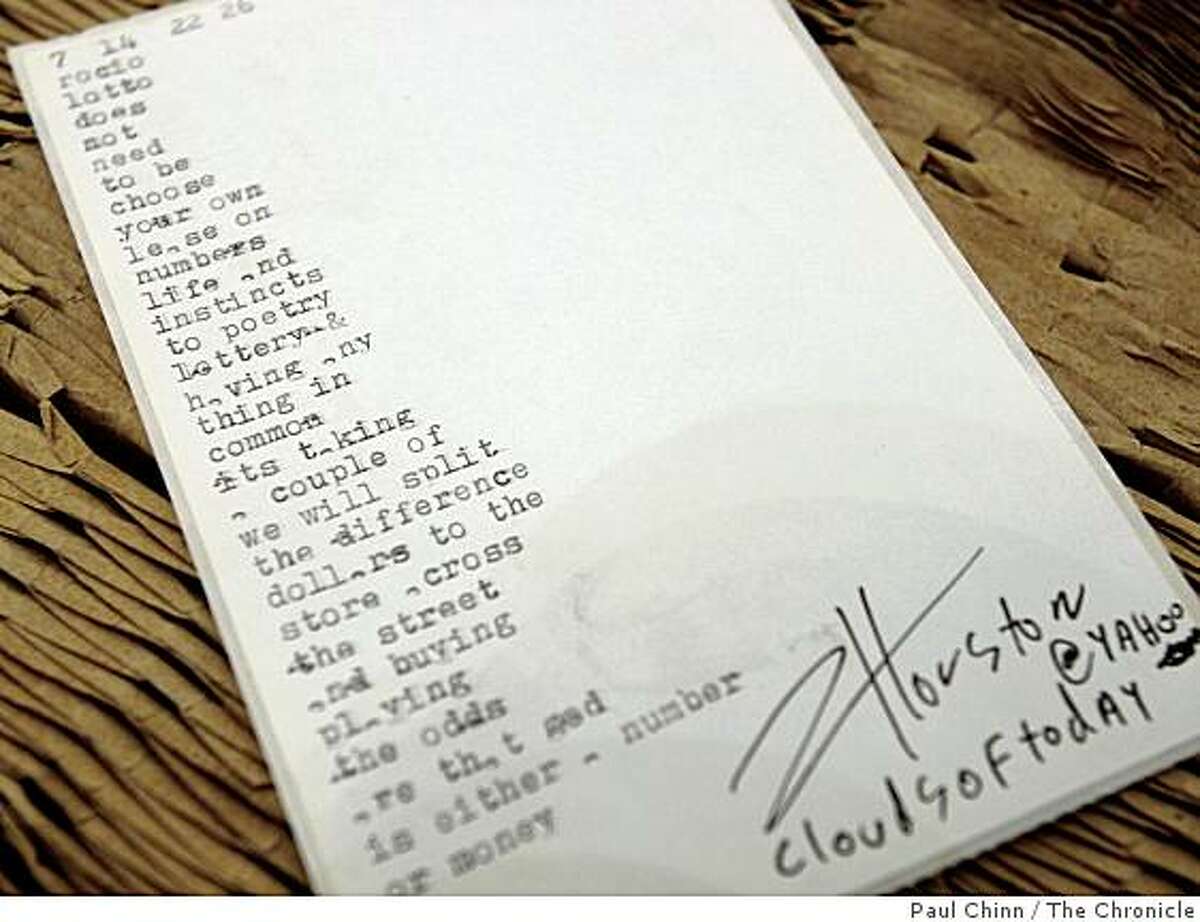 7 14 22 26
rocio
lotto
does
not
need
to be
choose
your own
lease on
numbers
life and
instincts
to poetry
lottery &
having any
thing in
common
its taking
a couple of
we will split
the difference
dollars to the
store across
the street
and buying
playing
the odds
are that sed
is either a number
or money
ZHouston
@YAHOO
cloudsoftodAY
Paul Chinn / The Chronicle